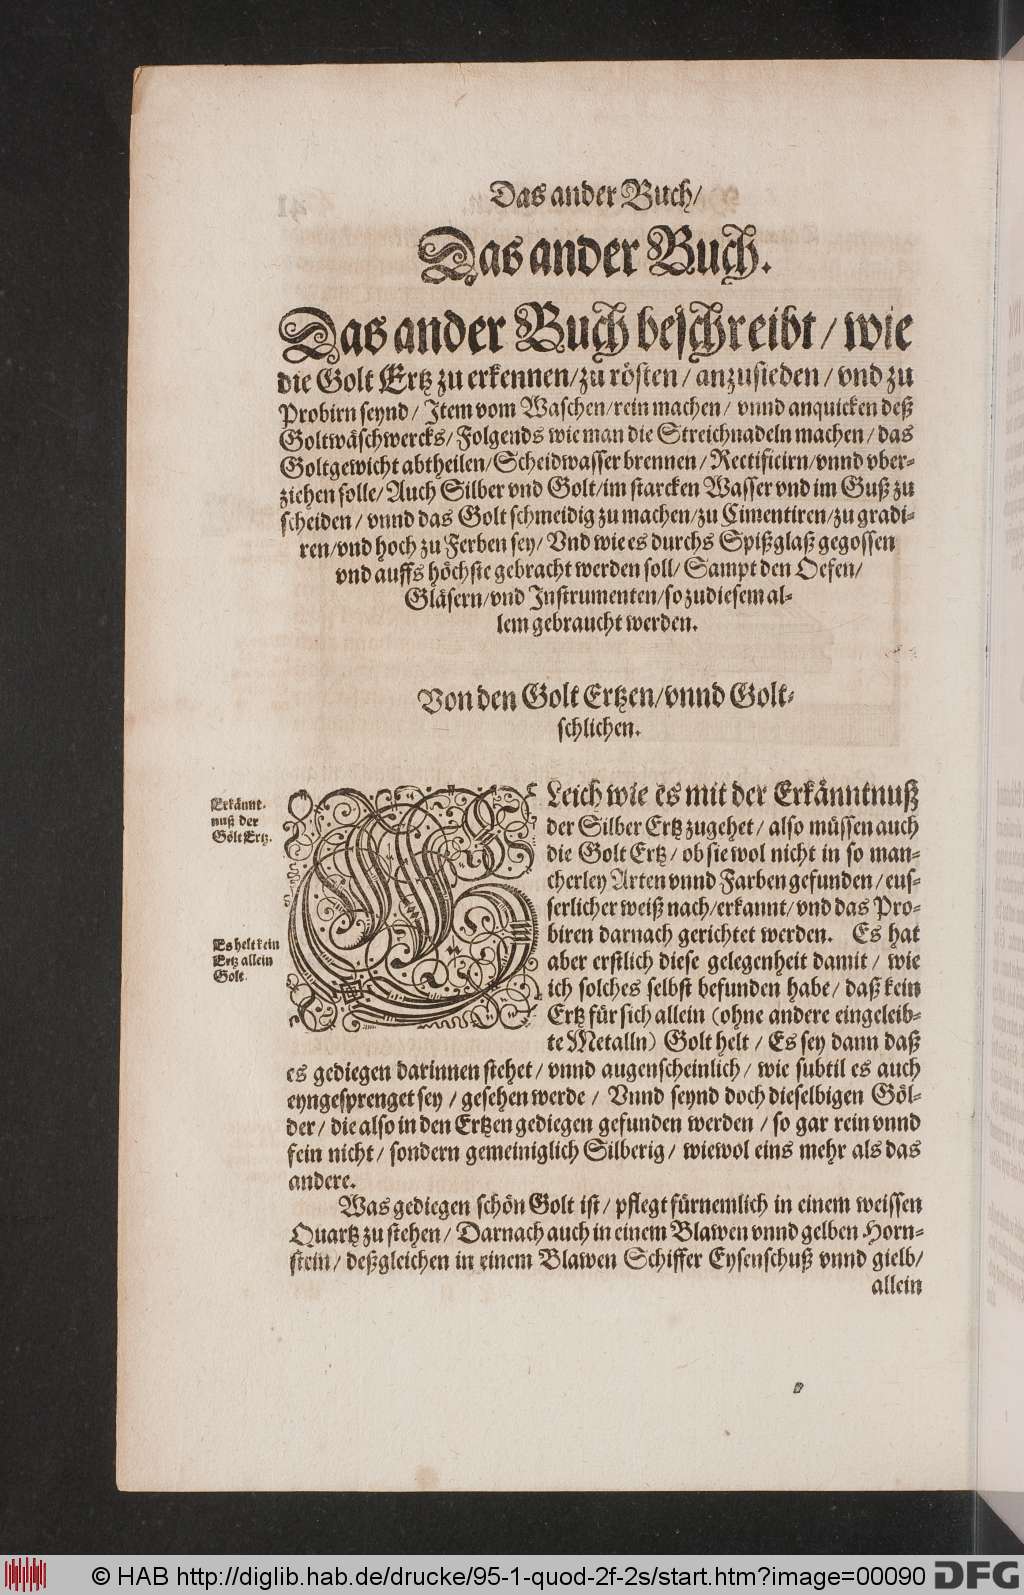 Das ander Buch/
Das ander Buch.
Das ander Buch beschreibt / wie
die Golt Ertz zu erkennen/zu rösten / anzusieden / vnd zu
Probirn seynd / Item vom Waschen/rein machen / vnnd anquicken deß
Goltwäschwercks/ Folgends wie man die Streichnadeln machen / das
Goltgewicht abtheilen/Scheidwasser brennen / Rectificirn/vnnd vber-
ziehen solle/ Auch Silber vnd Golt/im starcken Wasser vnd im Guß zu
scheiden / vnnd das Golt schmeidig zu machen/zu Cimentiren/zu gradi-
ren/vnd hoch zu Ferben sey/ Vnd wie es durchs Spißglaß gegossen
vnd auffs höchste gebracht werden soll/ Sampt den Oefen/
Gläsern/vnd Instrumenten/so zu diesem al-
lem gebraucht werden.
Von den Golt Ertzen/vnnd Golt-
schlichen.
Erkännt-
nuß der
Gölt Ertz.
GLeich wie es mit der Erkänntnuß
der Silber Ertz zugehet / also müssen auch
die Golt Ertz / ob sie wol nicht in so man-
cherley Arten vnnd Farben gefunden / eus-
serlicher weiß nach/erkannt/ vnd das Pro-
biren darnach gerichtet werden. Es hat
Es helt kein
Ertz allein
Golt.
aber erstlich diese gelegenheit damit / wie
ich solches selbst befunden habe / daß kein
Ertz für sich allein (ohne andere eingeleib-
te Metalln) Golt helt / Es sey dann daß
es gediegen darinnen stehet / vnnd augenscheinlich / wie subtil es auch
eyngesprenget sey / gesehen werde / Vnnd seynd doch dieselbigen Göl-
der / die also in den Ertzen gediegen gefunden werden / so gar rein vnnd
fein nicht / sondern gemeiniglich Silberig / wiewol eins mehr als das
andere.
Was gediegen schön Golt ist / pflegt fürnemlich in einem weissen
Quartz zu stehen / Darnach auch in einem Blawen vnnd gelben Horn-
stein / deßgleichen in einem Blawen Schiffer Eysenschuß vnnd gielb/
allein
© HAB http://diglib.hab.de/drucke/95-1-quod-2f-2s/start.htm?image=00090
DFG